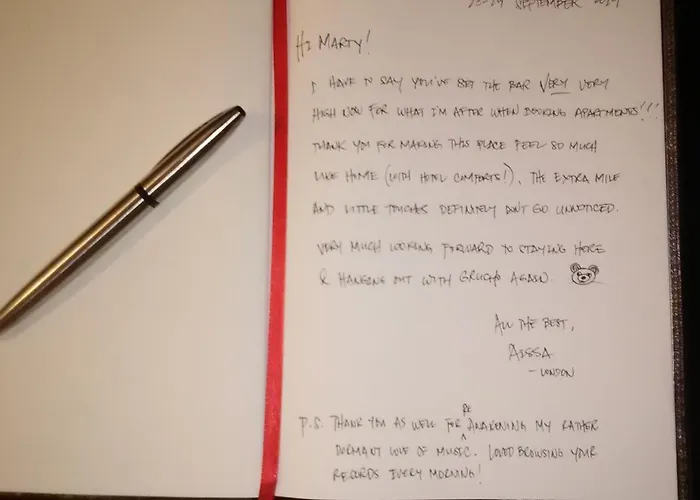 SEPTEMBER
HI MARTY!
I HAVE TO SAY YOU'VE SET THE BAR VERY VERY
HIGH NOW FOR WHAT I'M AFTER WHEN BOOKING APARTMENTS!!!
THANK YOU FOR MAKING THIS PLACE FEEL SO MUCH
LIKE HOME (WITH HOTEL COMFORTS!). THE EXTRA MILE
AND LITTLE TOUCHES DEFINITELY DON'T GO UNNOTICED.
VERY MUCH LOOKING FORWARD TO STAYING HERE
& HANGING OUT WITH GRUCHO AGAIN.
ALL THE BEST,
AISSA
- LONDON
P.S. THANK YOU AS WELL FOR RE AWAKENING MY RATHER
DORMANT LOVE OF MUSIC. LOVED BROWSING YOUR
RECORDS EVERY MORNING!